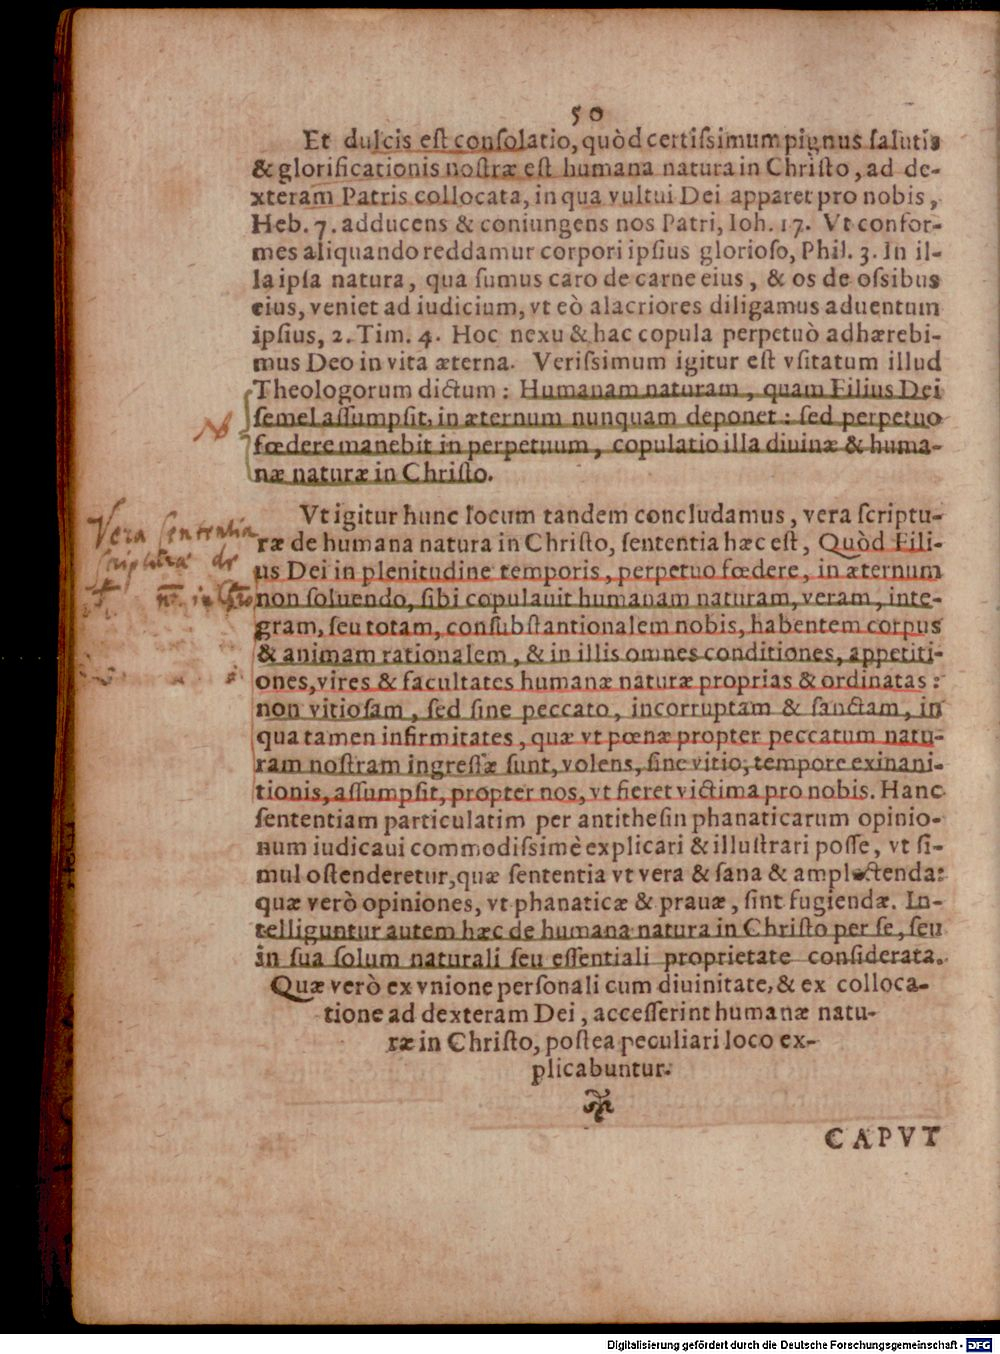 50
Et dulcis eſt conſolatio, quòd certiſsimum pignus ſalutis
& glorificationis noſtræ eſt humana natura in Chriſto, ad de-
xteram Patris collocata, in qua vultui Dei apparet pro nobis,
Heb. 7. adducens & coniungens nos Patri, Ioh. 17. Vt confor-
mes aliquando reddamur corpori ipſius glorioſo, Phil. 3. In il-
la ipſa natura, qua ſumus caro de carne eius, & os de oſsibus
eius, veniet ad iudicium, vt eò alacriores diligamus aduentum
ipſius, 2. Tim. 4. Hoc nexu & hac copula perpetuò adhærebi-
mus Deo in vita æterna. Veriſsimum igitur eſt vſitatum illud
Theologorum dictum: Humanam naturam, quam Filius Dei
ſemel aſſumpſit, in æternum nunquam deponet: ſed perpetuo
fœdere manebit in perpetuum, copulatio illa diuinæ & huma-
næ naturæ in Chriſto.
Vt igitur hunc locum tandem concludamus, vera ſcriptu-
ræ de humana natura in Chriſto, ſententia hæc eſt, Quòd Fili-
us Dei in plenitudine temporis, perpetuo fœdere, in æternum
non ſoluendo, ſibi copulauit humanam naturam, veram, inte-
gram, ſeu totam, conſubſtantionalem nobis, habentem corpus
& animam rationalem, & in illis omnes conditiones, appetiti-
ones, vires & facultates humanæ naturæ proprias & ordinatas:
non vitioſam, ſed ſine peccato, incorruptam & ſanctam, in
qua tamen infirmitates, quæ vt pœnæ propter peccatum natu-
ram noſtram ingreſſæ ſunt, volens, ſine vitio, tempore exinani-
tionis, aſſumpſit, propter nos, vt fieret victima pro nobis. Hanc
ſententiam particulatim per antitheſin phanaticarum opinio-
num iudicaui commodiſsimè explicari & illuſtrari poſſe, vt ſi-
mul oſtenderetur, quæ ſententia vt vera & ſana & amplectenda:
quæ verò opiniones, vt phanaticæ & prauæ, ſint fugiendæ. In-
telliguntur autem hæc de humana natura in Chriſto per ſe, ſeu
in ſua ſolum naturali ſeu eſſentiali proprietate conſiderata.
Quæ verò ex vnione perſonali cum diuinitate, & ex colloca-
tione ad dexteram Dei, acceſſerint humanæ natu-
ræ in Chriſto, poſtea peculiari loco ex-
plicabuntur.
CAPVT
Vera ſententia
ſcripturæ de
Digitalisierung gefördert durch die Deutsche Forschungsgemeinschaft - DFG